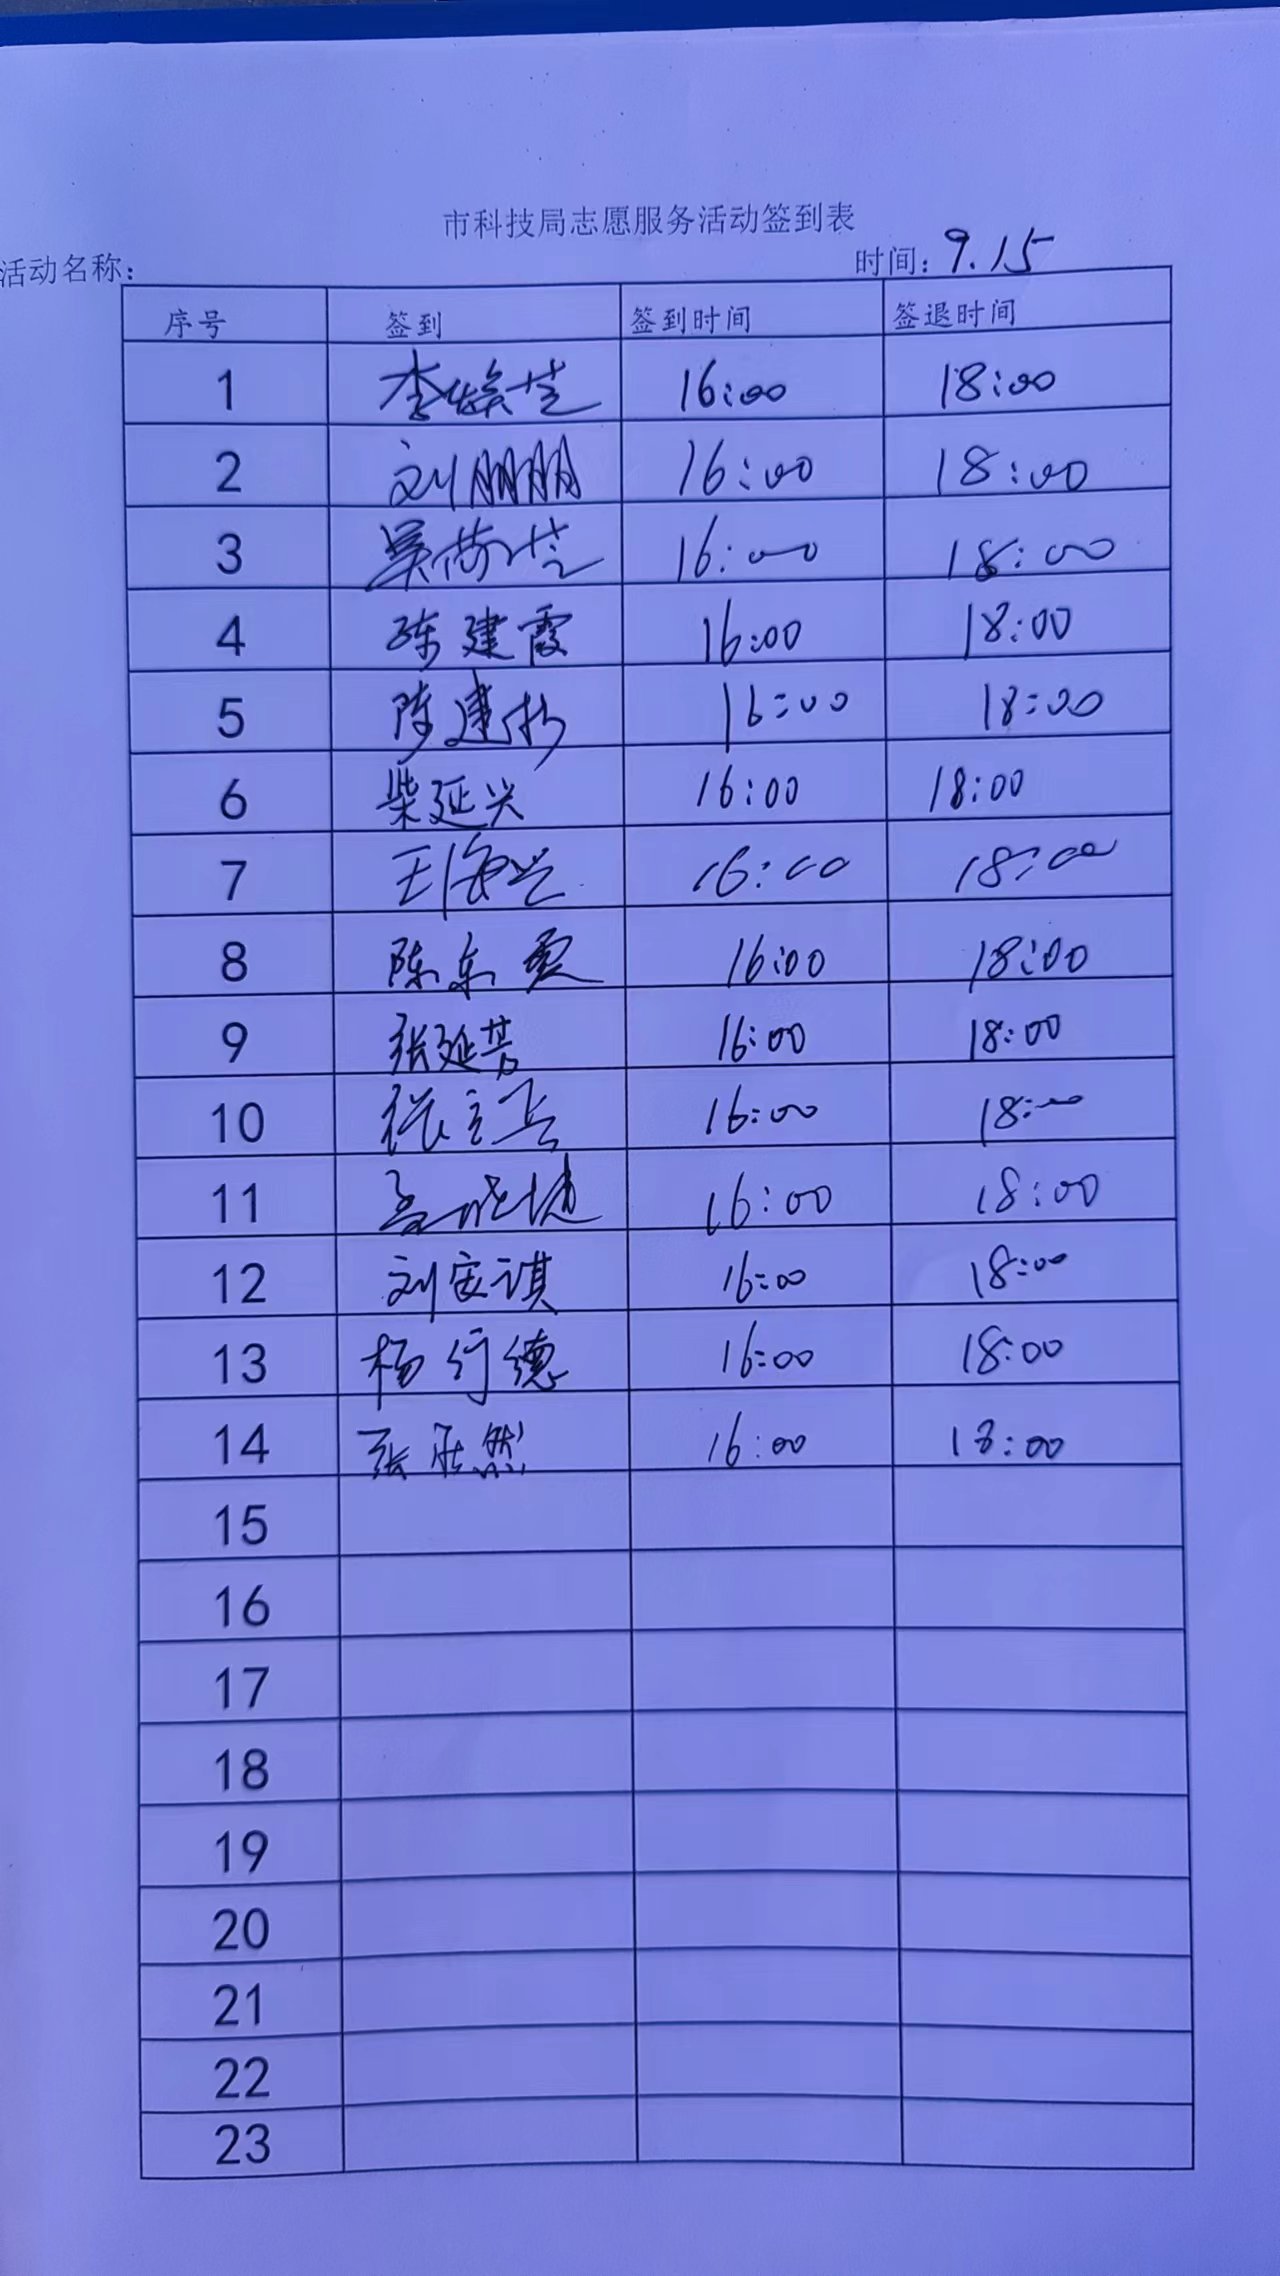 市科技局志愿服务活动签到表
活动名称： 时间：9.15
序号 签到 签到时间 签退时间
1 李 芝 16:00 18:00
2 刘朋朋 16:00 18:00
3 吴 芝 16:00 18:00
4 陈建霞 16:00 18:00
5 陈建 16:00 18:00
6 柴延兴 16:00 18:00
7 王海兰 16:00 18:00
8 陈东霞 16:00 18:00
9 张延芳 16:00 18:00
10 张立兵 16:00 18:00
11 孟晓婕 16:00 18:00
12 刘安琪 16:00 18:00
13 杨行德 16:00 18:00
14 张 然 16:00 18:00
15
16
17
18
19
20
21
22
23